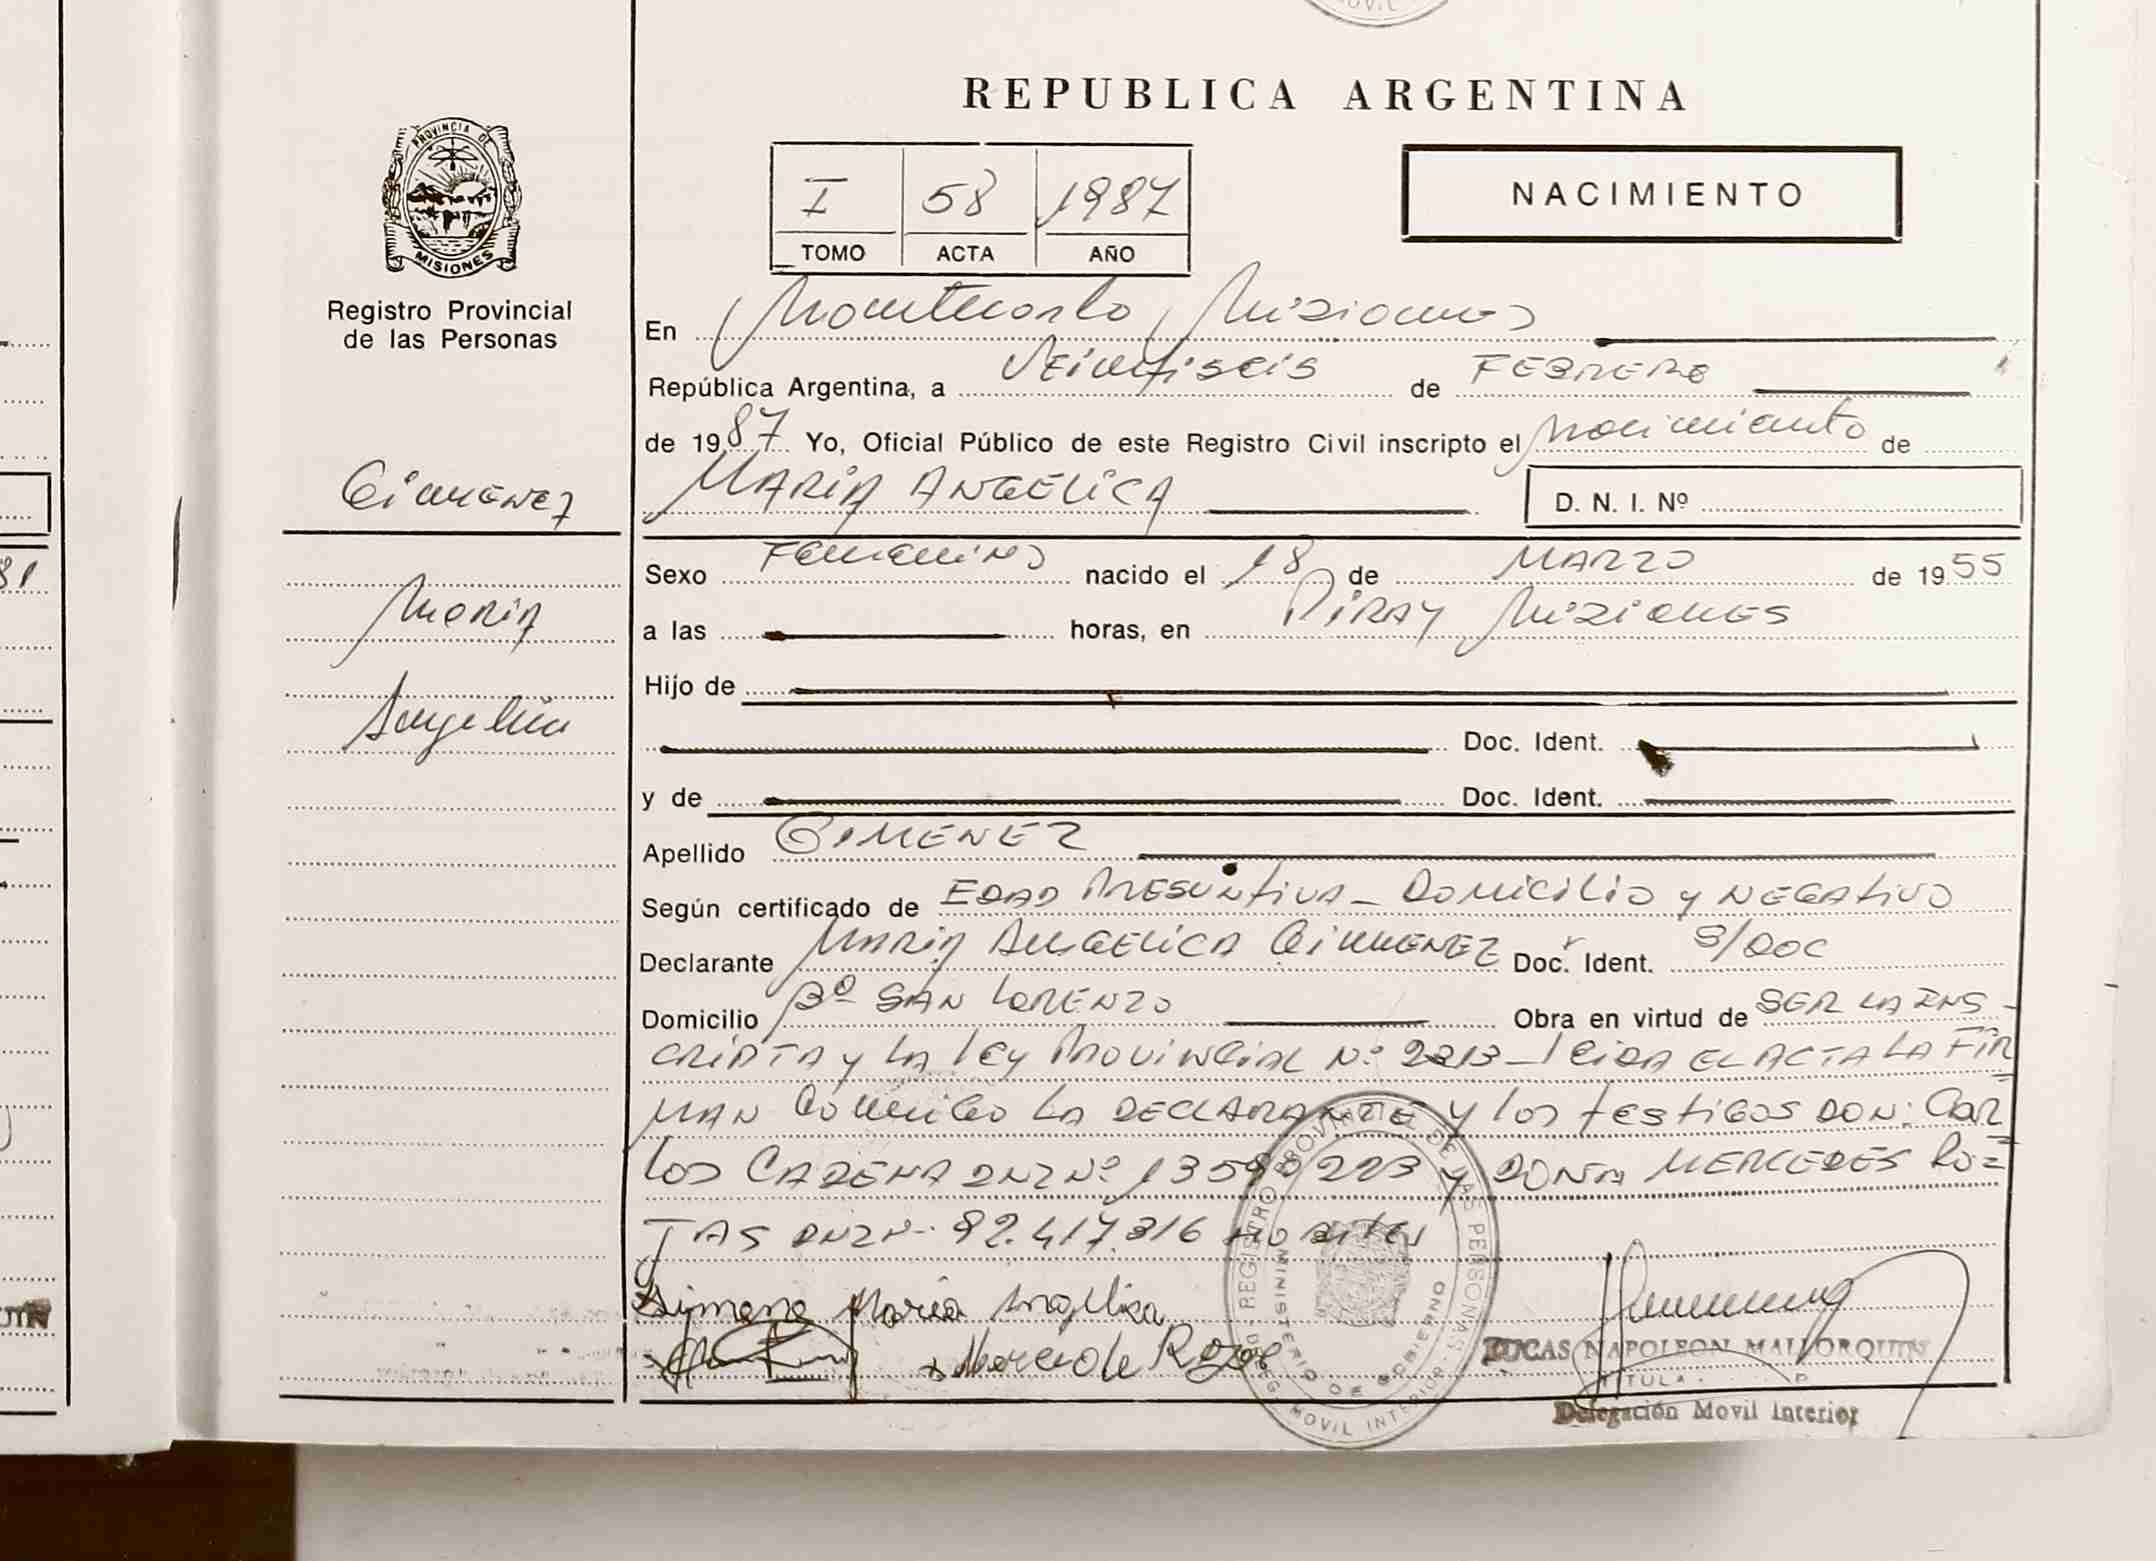 REPUBLICA ARGENTINA
PROVINCIA DE
MISIONES
Registro Provincial
de las Personas
I 58 1987
TOMO ACTA AÑO
NACIMIENTO
En Montecarlo, Misiones
República Argentina, a Veintiseis de FEBRERO
de 1987 Yo, Oficial Público de este Registro Civil inscripto el Nacimiento de
Gimenez
MARIA ANGELICA D. N. I. Nº
Sexo Femenino nacido el 18 de MARZO de 1955
Maria
a las horas, en PIRAY Misiones
Hijo de
Angelica
Doc. Ident.
y de Doc. Ident.
Apellido GIMENEZ
Según certificado de EDAD PRESUNTIVA - DOMICILIO y NEGATIVO
Declarante MARIA ANGELICA GIMENEZ Doc. Ident. S/DOC
Domicilio Bº SAN LORENZO Obra en virtud de SER LA INS-
CRIPTA y LA LEY PROVINCIAL Nº 2213 - LEIDA EL ACTA LA FIR
MAN CONMIGO LA DECLARANTE y LOS TESTIGOS DON: CAR
LOS CADENA DNI Nº 13590223 y DOÑA MERCEDES RO=
JAS DNI Nº 92.417.316
Maria Angelica
Mercede Rojas
REGISTRO PROVINCIAL DE LAS PERSONAS
MINISTERIO DE GOBIERNO
DELEG. MOVIL INTERIOR
LUCAS NAPOLEON MALLORQUIN
TITULAR
Delegación Movil Interior